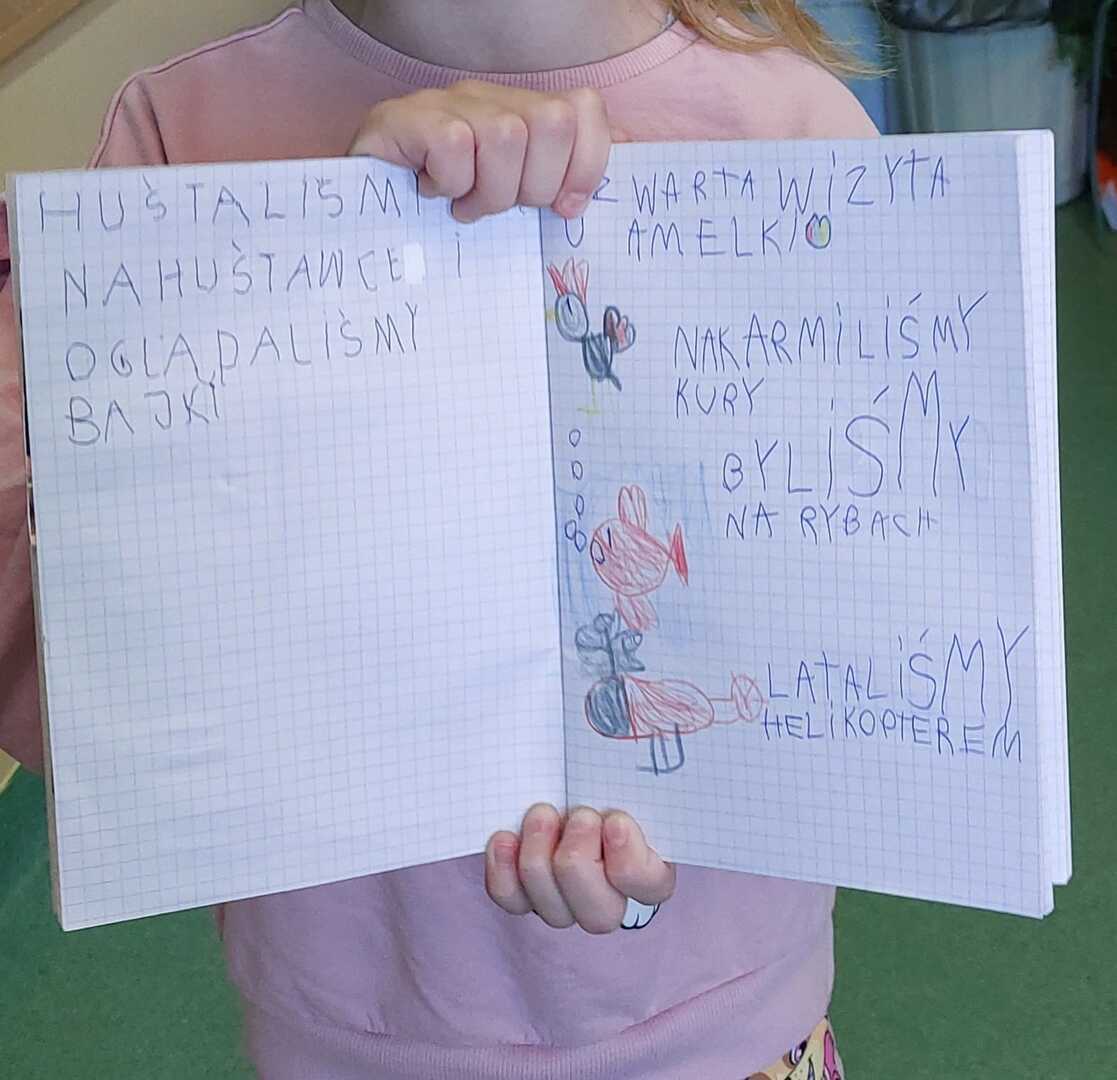 HUŚTALIŚMY
NAHUŚTAWCE i
OGLĄDALIŚMY
BAJKI
WARTA WIZYTA
U AMELKI
NAKARMILIŚMY
KURY
BYLIŚMY
NA RYBACH
LATALIŚMY
HELIKOPTEREM